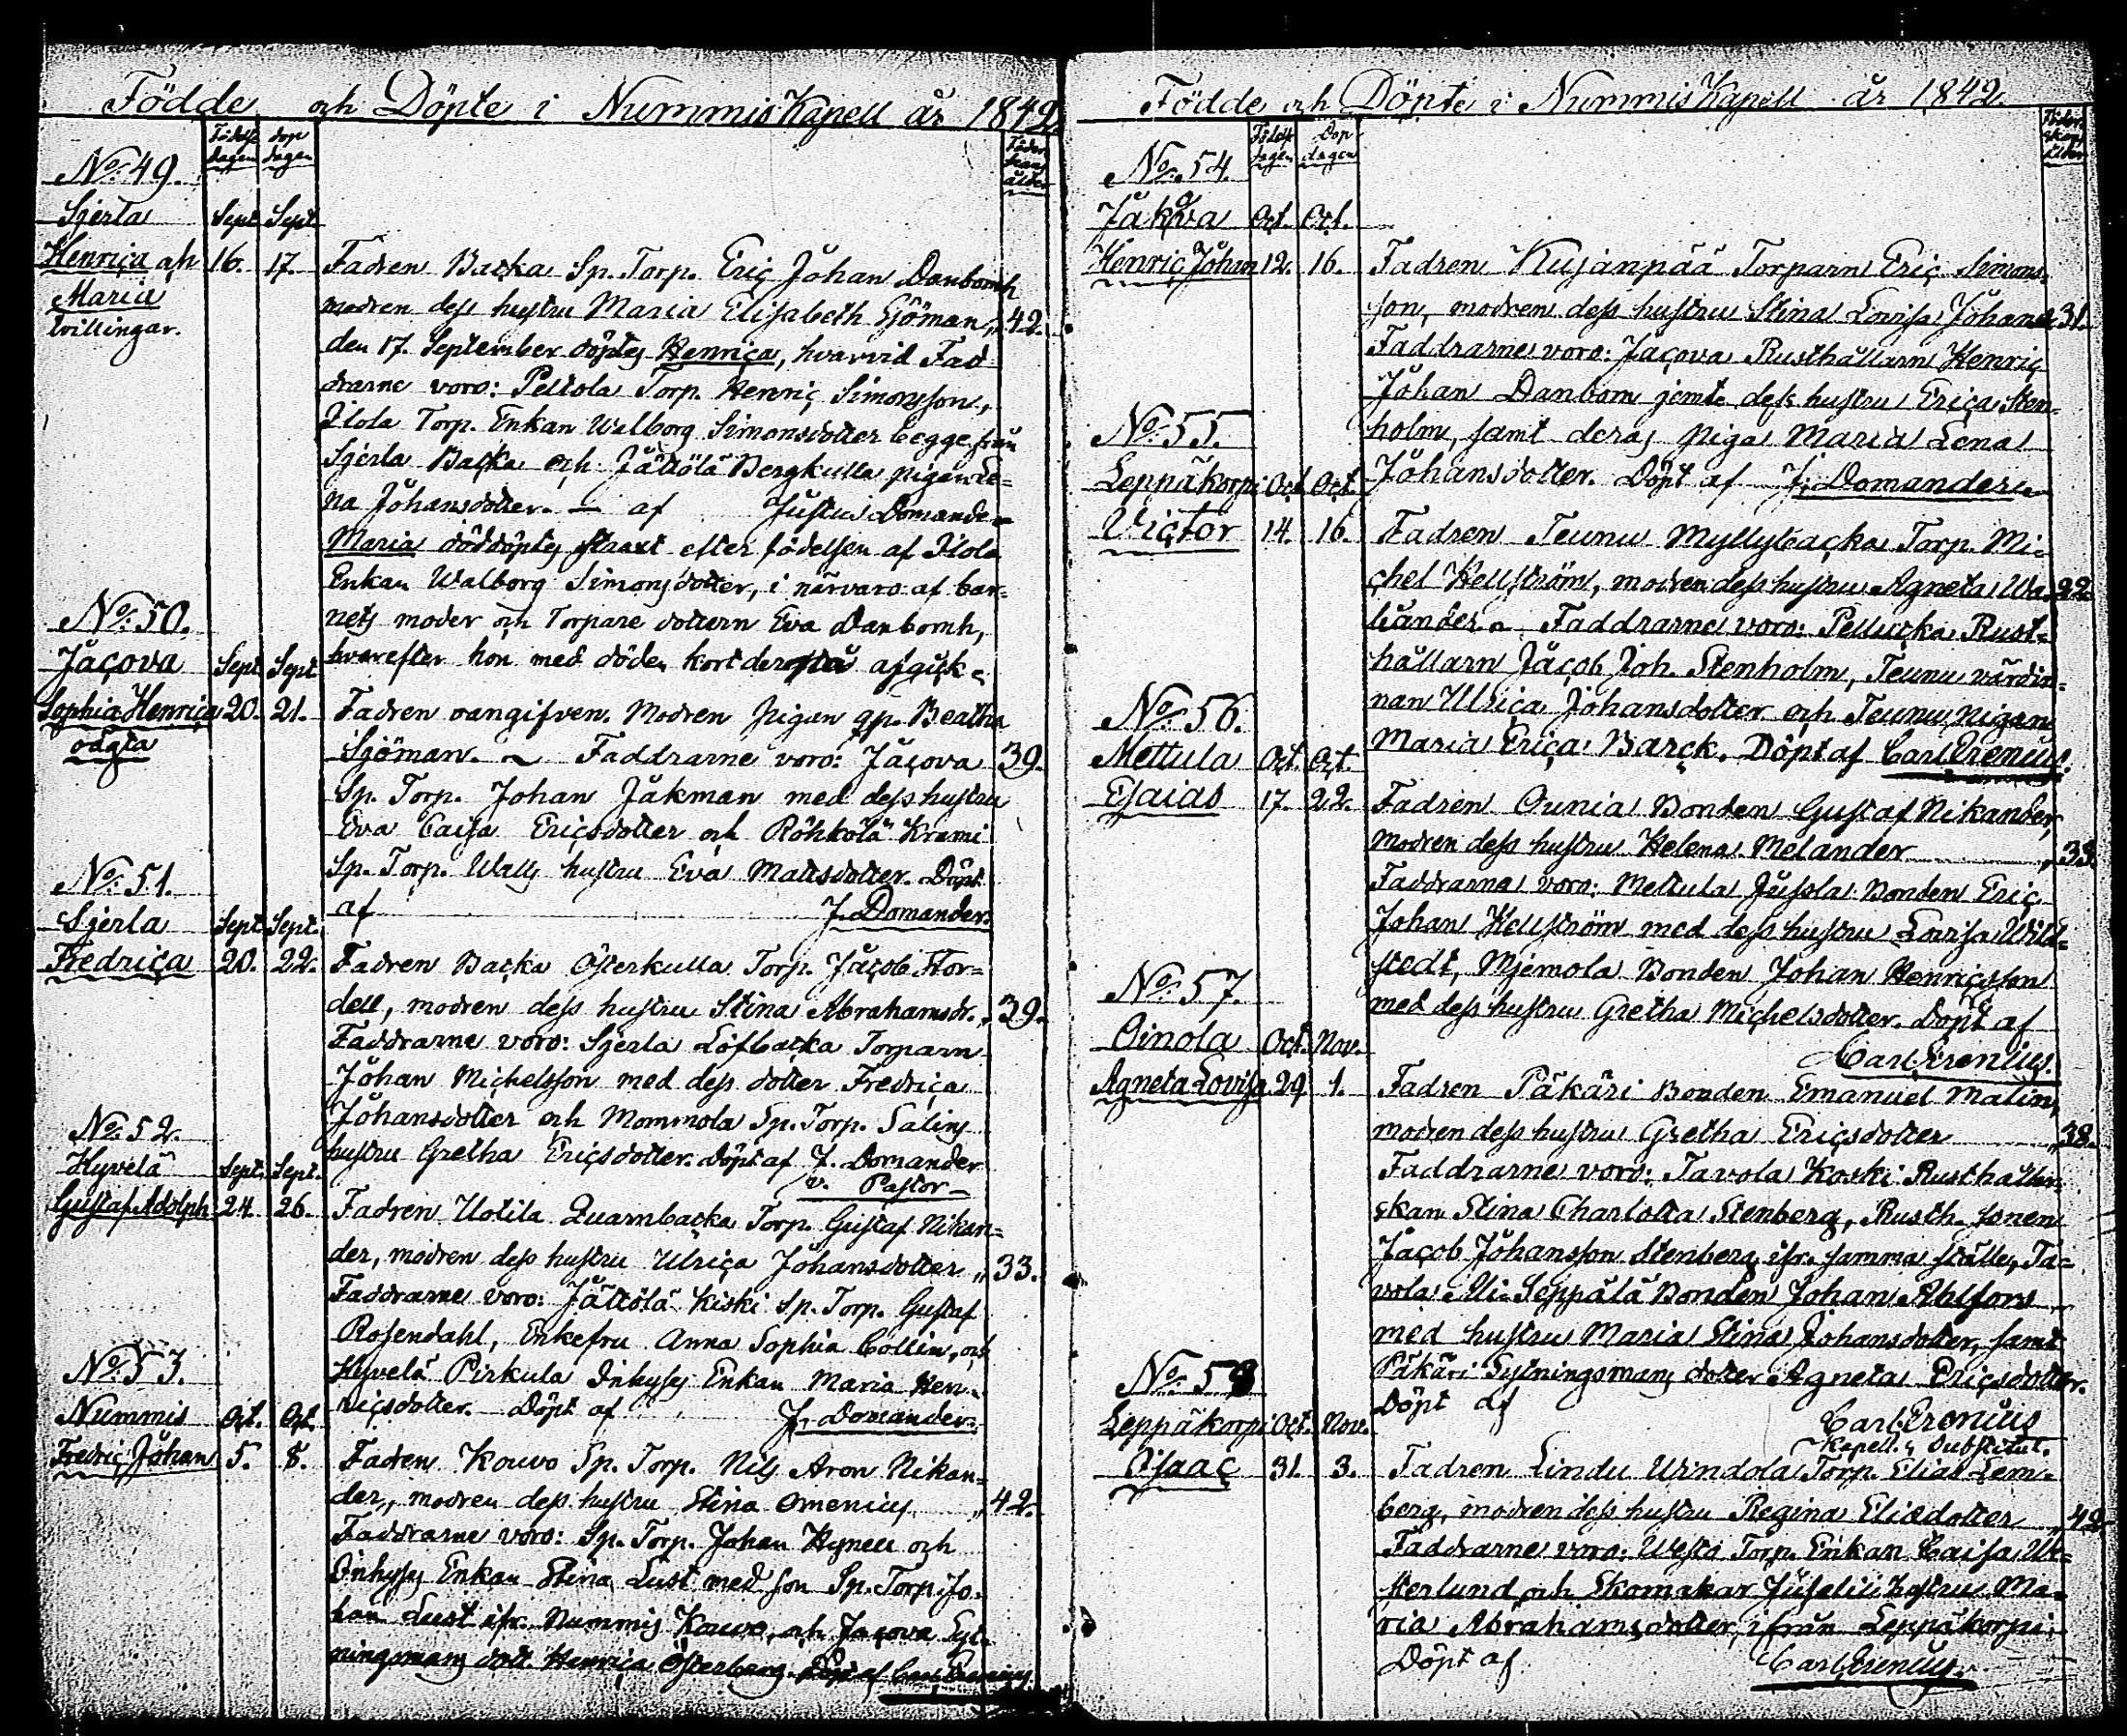 Födde och Döpte i Nummis Kapell år 1842.
Födelse dagen
dop dagen
Föder skans ålder
No: 49.
Sjerla Sept. Sept.
Henrica och 16. 17.
Maria
tvillingar.
Fadren Backa Sp. Torp. Eric Johan Danbomh
modren dess hustru Maria Elisabeth Sjöman „ 42.
den 17. September döptes Henrica, hvarvid Fad-
drarne voro: Peltola Torp. Henric Simonsson,
Ilola Torp. Enkan Walborg Simonsdotter begge från
Sjerla Backa och Jättölä Bergkulla pigan Le-
na Johansdotter. — af Justus Domander
Maria döddöptes straxt efter födelsen af Ilola
Enkan Walborg Simonsdotter, i närvaro af bar-
nets moder och Torpare dottern Eva Danbomh,
hvarefter hon med döden kort derpå afgick.
No: 50.
Jacova Sept. Sept.
Sophia Henrica 20. 21.
oägta
Fadren oangifven. Modren Pigan gp. Beatha
Sjöman. ~ Faddrarne voro: Jacova 39.
Sp. Torp. Johan Jäkman med dess hustru
Eva Caisa Ericsdotter och Röhkölä Krami
Sp. Torp. Walls hustru Eva Matsdotter. Döpt
af J. Domander.
No: 51.
Sjerla Sept. Sept.
Fredrica 20. 22.
Fadren Backa Österkulla Torp. Jacob Stor-
dell, modren dess hustru Stina Abrahamsdr. „ 39.
Faddrarne voro: Sjerla Löfbacka Torparn
Johan Michelsson med dess dotter Fredrica
Johansdotter och Mommola Sp. Torp. Salins
hustru Gretha Ericsdotter. Döpt af J. Domander
v. Pastor
No: 52.
Hyvelä Sept. Sept.
Gustaf Adolph 24. 26.
Fadren Uotila Quarnbacka Torp. Gustaf Nikan-
der, modren dess hustru Ulrica Johansdotter „ 33.
Faddrarne voro: Jättölä Kiski Sp. Torp. Gustaf
Rosendahl, Enkefru Anna Sophia Collin, och
Hyvelä Pirkula Inhyses Enkan Maria Hen-
ricsdotter. Döpt af J. Domander.
No: 53.
Nummis Oct. Oct.
Fredric Johan 5. 8.
Fadren Kouvo Sp. Torp. Nils Aron Nikan-
der, modren dess hustru Stina Omenius „ 42.
Faddrarne voro: Sp. Torp. Johan Hynell och
Inhyses Enkan Stina Lust med son Sp. Torp. Jo-
han Lust ifr. Nummis Kouvo, och Jacova Syt-
ningsmans dott. Henrica Österberg. Döpt af Carl Erenius
Födde och Döpte i Nummis Kapell år 1842.
Födelse dagen
Dop dagen
Föder skans ålder
No: 54.
Jakova Oct. Oct.
Henric Johan 12. 16.
Fadren Kujanpää Torparn Eric Simons-
son, modren dess hustru Stina Lovisa Johansd. 31.
Faddrarne voro: Jacova Rusthållarn Henric
Johan Danbom jemte dess hustru Erica Sten-
holm, samt deras piga Maria Lena
Johansdotter. Döpt af J. Domander
No: 55.
Leppäkorpi Oct. Oct.
Victor 14. 16.
Fadren Teunu Myllybacka Torp. Mi-
chel Hellström, modren dess hustru Agneta Wa- 22.
lander. Faddrarne voro: Pellucka Rust-
hållarn Jacob Joh. Stenholm, Teunu värdin-
nan Ulrica Johansdotter och Teunu pigan
Maria Erica Barck. Döpt af Carl Erenius.
No: 56.
Mettula Oct. Oct.
Esaias 17. 22.
Fadren Ounia Bonden Gustaf Nikander,
modren dess hustru Helena Melander „ 38.
Faddrarne voro: Mettula Jussola Bonden Eric
Johan Hellström med dess hustru Lovisa Wild-
stedt, Mjemola Bonden Johan Henricsson
med dess hustru Gretha Michelsdotter. Döpt af
Carl Erenius.
No: 57.
Oinola Oct. Nov.
Agneta Lovisa 29. 1.
Fadren Päkäri Bonden Emanuel Malin,
modren dess hustru Gretha Ericsdotter „ 38.
Faddrarne voro: Tavola Koski Rusthållar-
skan Stina Charlotta Stenberg, Rusth. sonen
Jacob Johansson Stenberg ifr. samma ställe, Ta-
vola Ali-Seppälä Bonden Johan Ahlfors
med hustru Maria Stina Johansdotter, samt
Päkäri Sytningsmans dotter Agneta Ericsdotter.
Döpt af Carl Erenius
Kapell. Substitut.
No: 58
Leppäkorpi Oct. Nov.
Isaac 31. 3.
Fadren Lindu Uindola Torp. Elias Lem-
berg, modren dess hustru Regina Eliædotter „ 42.
Faddrarne voro: Westo Torp. Enkan Caisa We-
sterlund och Skomakar Juselii hustru Ma-
ria Abrahamsdotter, ifrån Leppäkorpi.
Döpt af Carl Erenius.